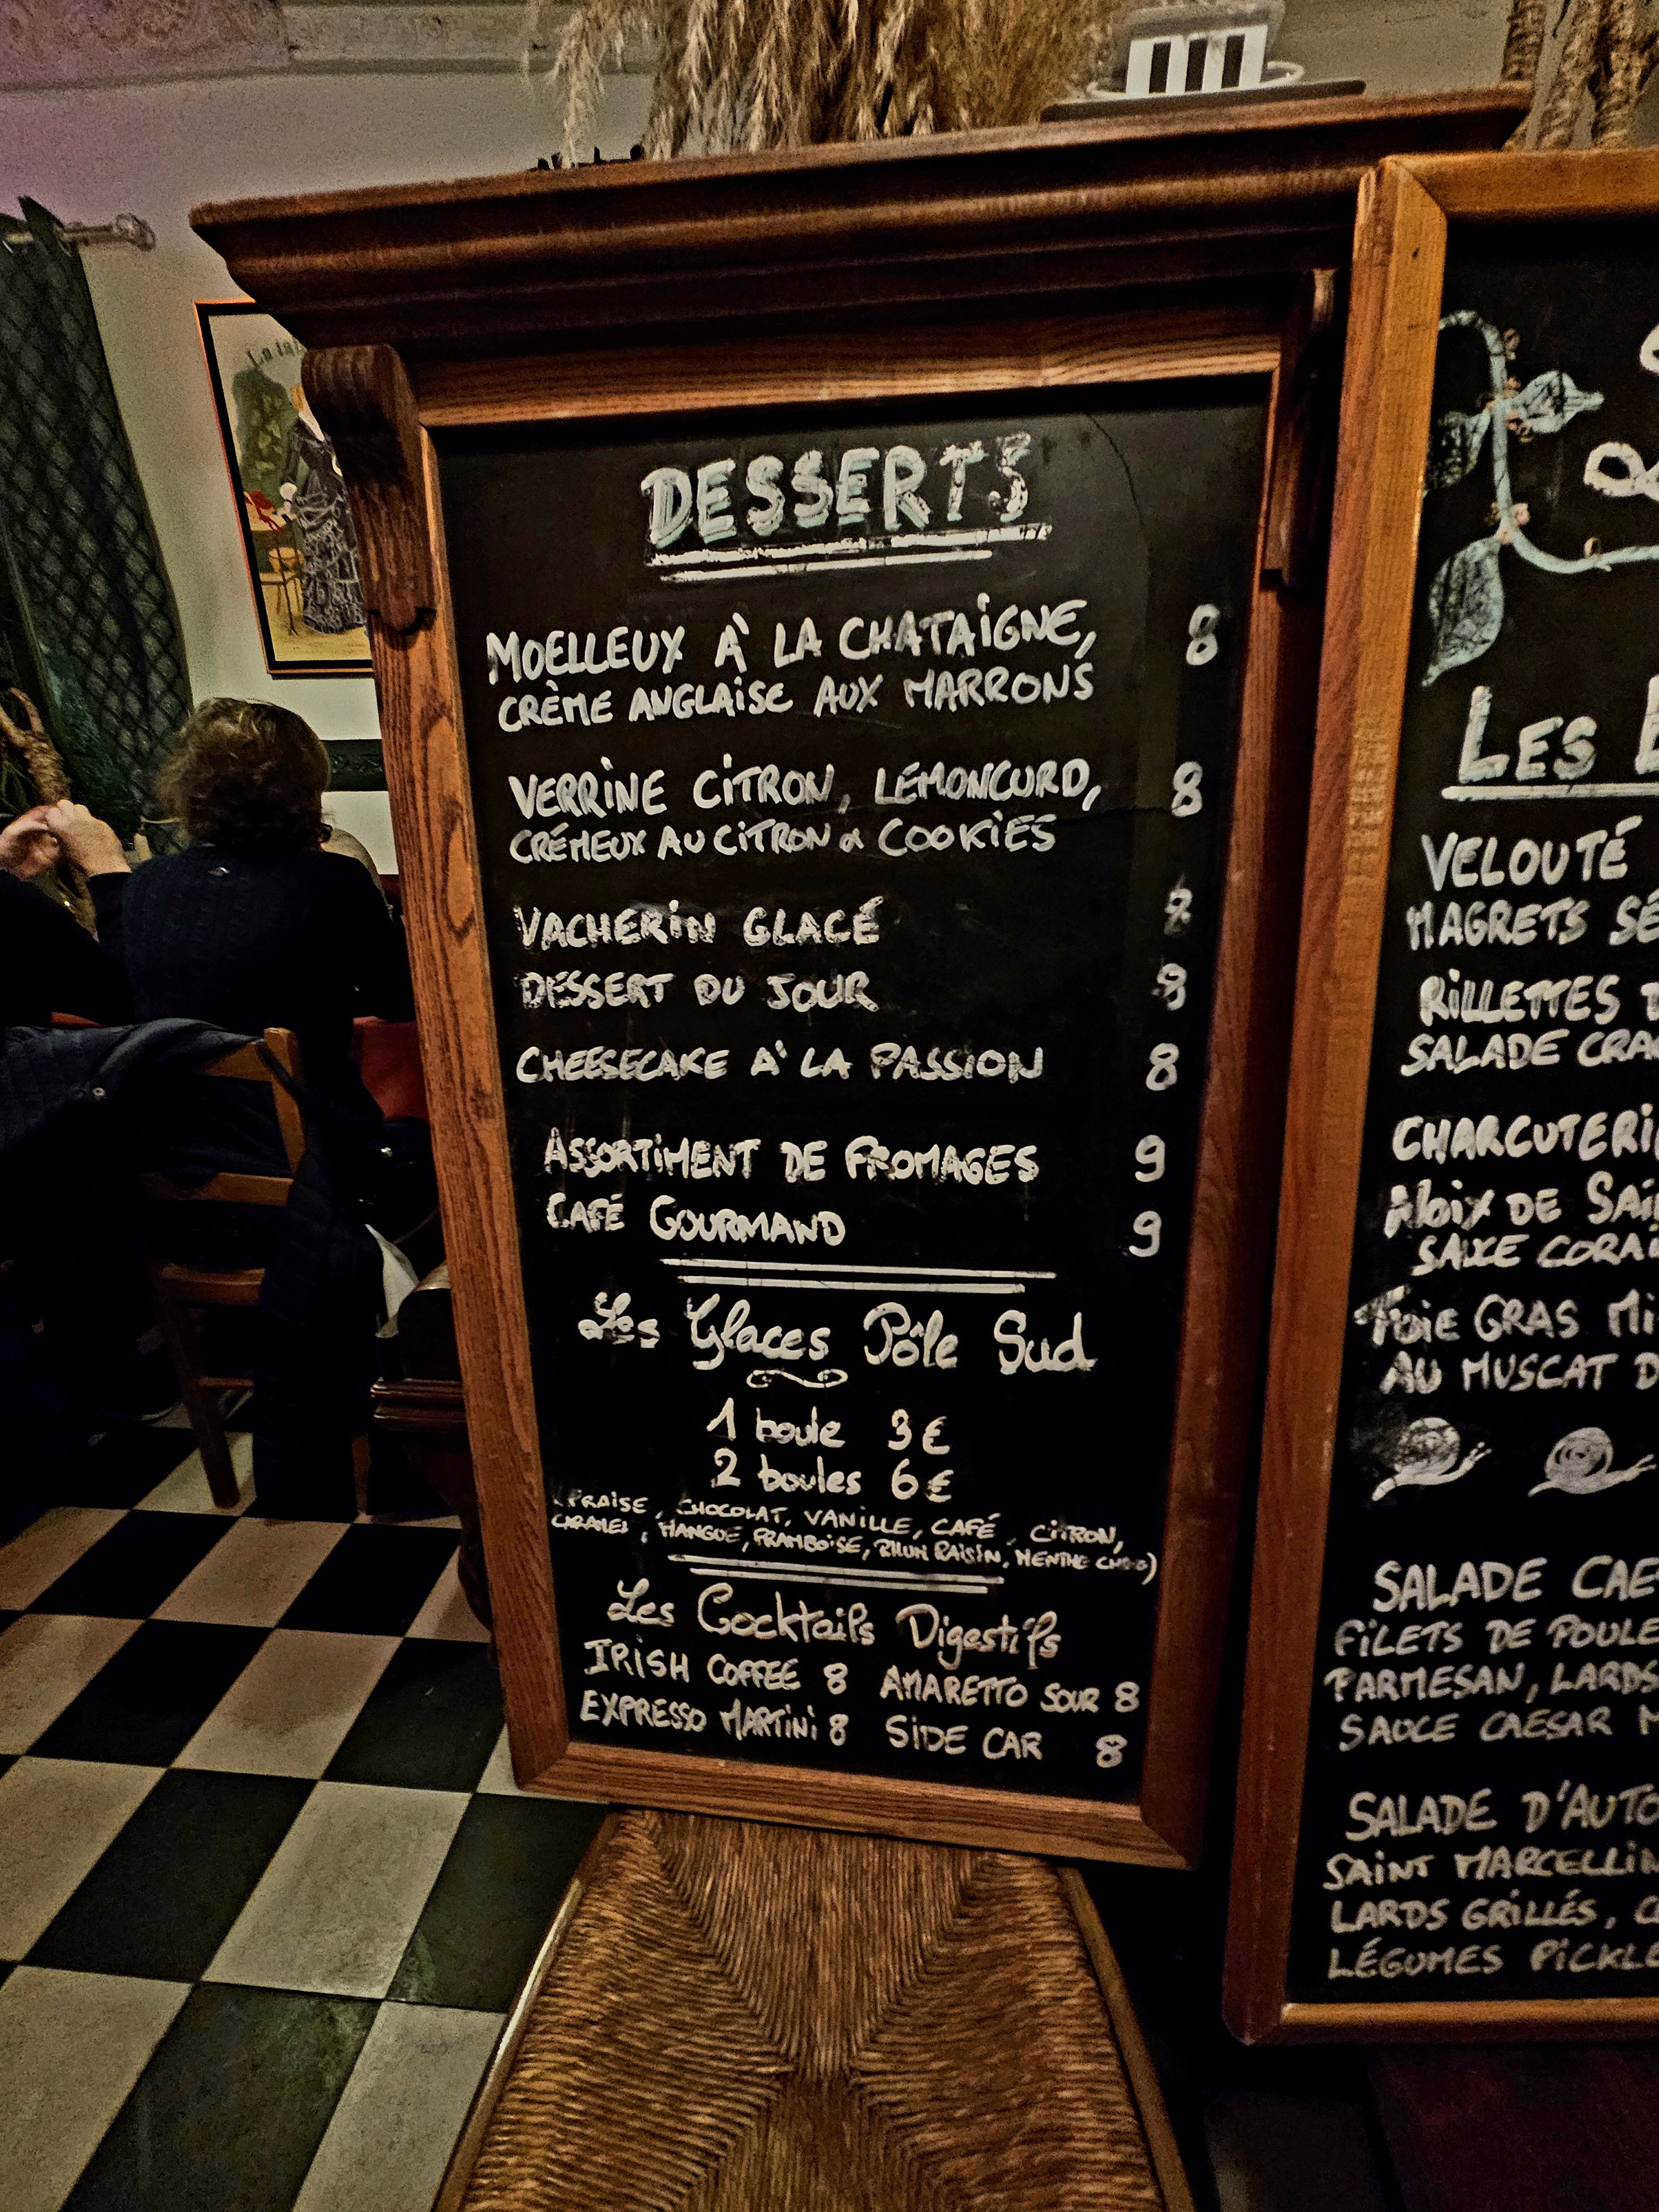 La
DESSERTS
MOELLEUX À LA CHATAIGNE, 8
CRÈME ANGLAISE AUX MARRONS
VERRINE CITRON, LEMONCURD, 8
CRÉMEUX AU CITRON & COOKIES
VACHERIN GLACÉ 8
DESSERT DU JOUR 8
CHEESECAKE À LA PASSION 8
ASSORTIMENT DE FROMAGES 9
CAFÉ GOURMAND 9
Les Glaces Pôle Sud
1 boule 3€
2 boules 6€
(FRAISE, CHOCOLAT, VANILLE, CAFÉ, CITRON,
CARAMEL, MANGUE, FRAMBOISE, RHUM RAISIN, MENTHE CHOC)
Les Cocktails Digestifs
IRISH COFFEE 8 AMARETTO SOUR 8
EXPRESSO MARTINI 8 SIDE CAR 8
LES
VELOUTÉ
MAGRETS SÉ
RILLETTES
SALADE CRA
CHARCUTERI
NOIX DE SAI
SAUCE CORAI
FOIE GRAS MI
AU MUSCAT D
SALADE CAE
FILETS DE POULE
PARMESAN, LARDS
SAUCE CAESAR
SALADE D'AUTO
SAINT MARCELLIN
LARDS GRILLÉS, C
LÉGUMES PICKLE